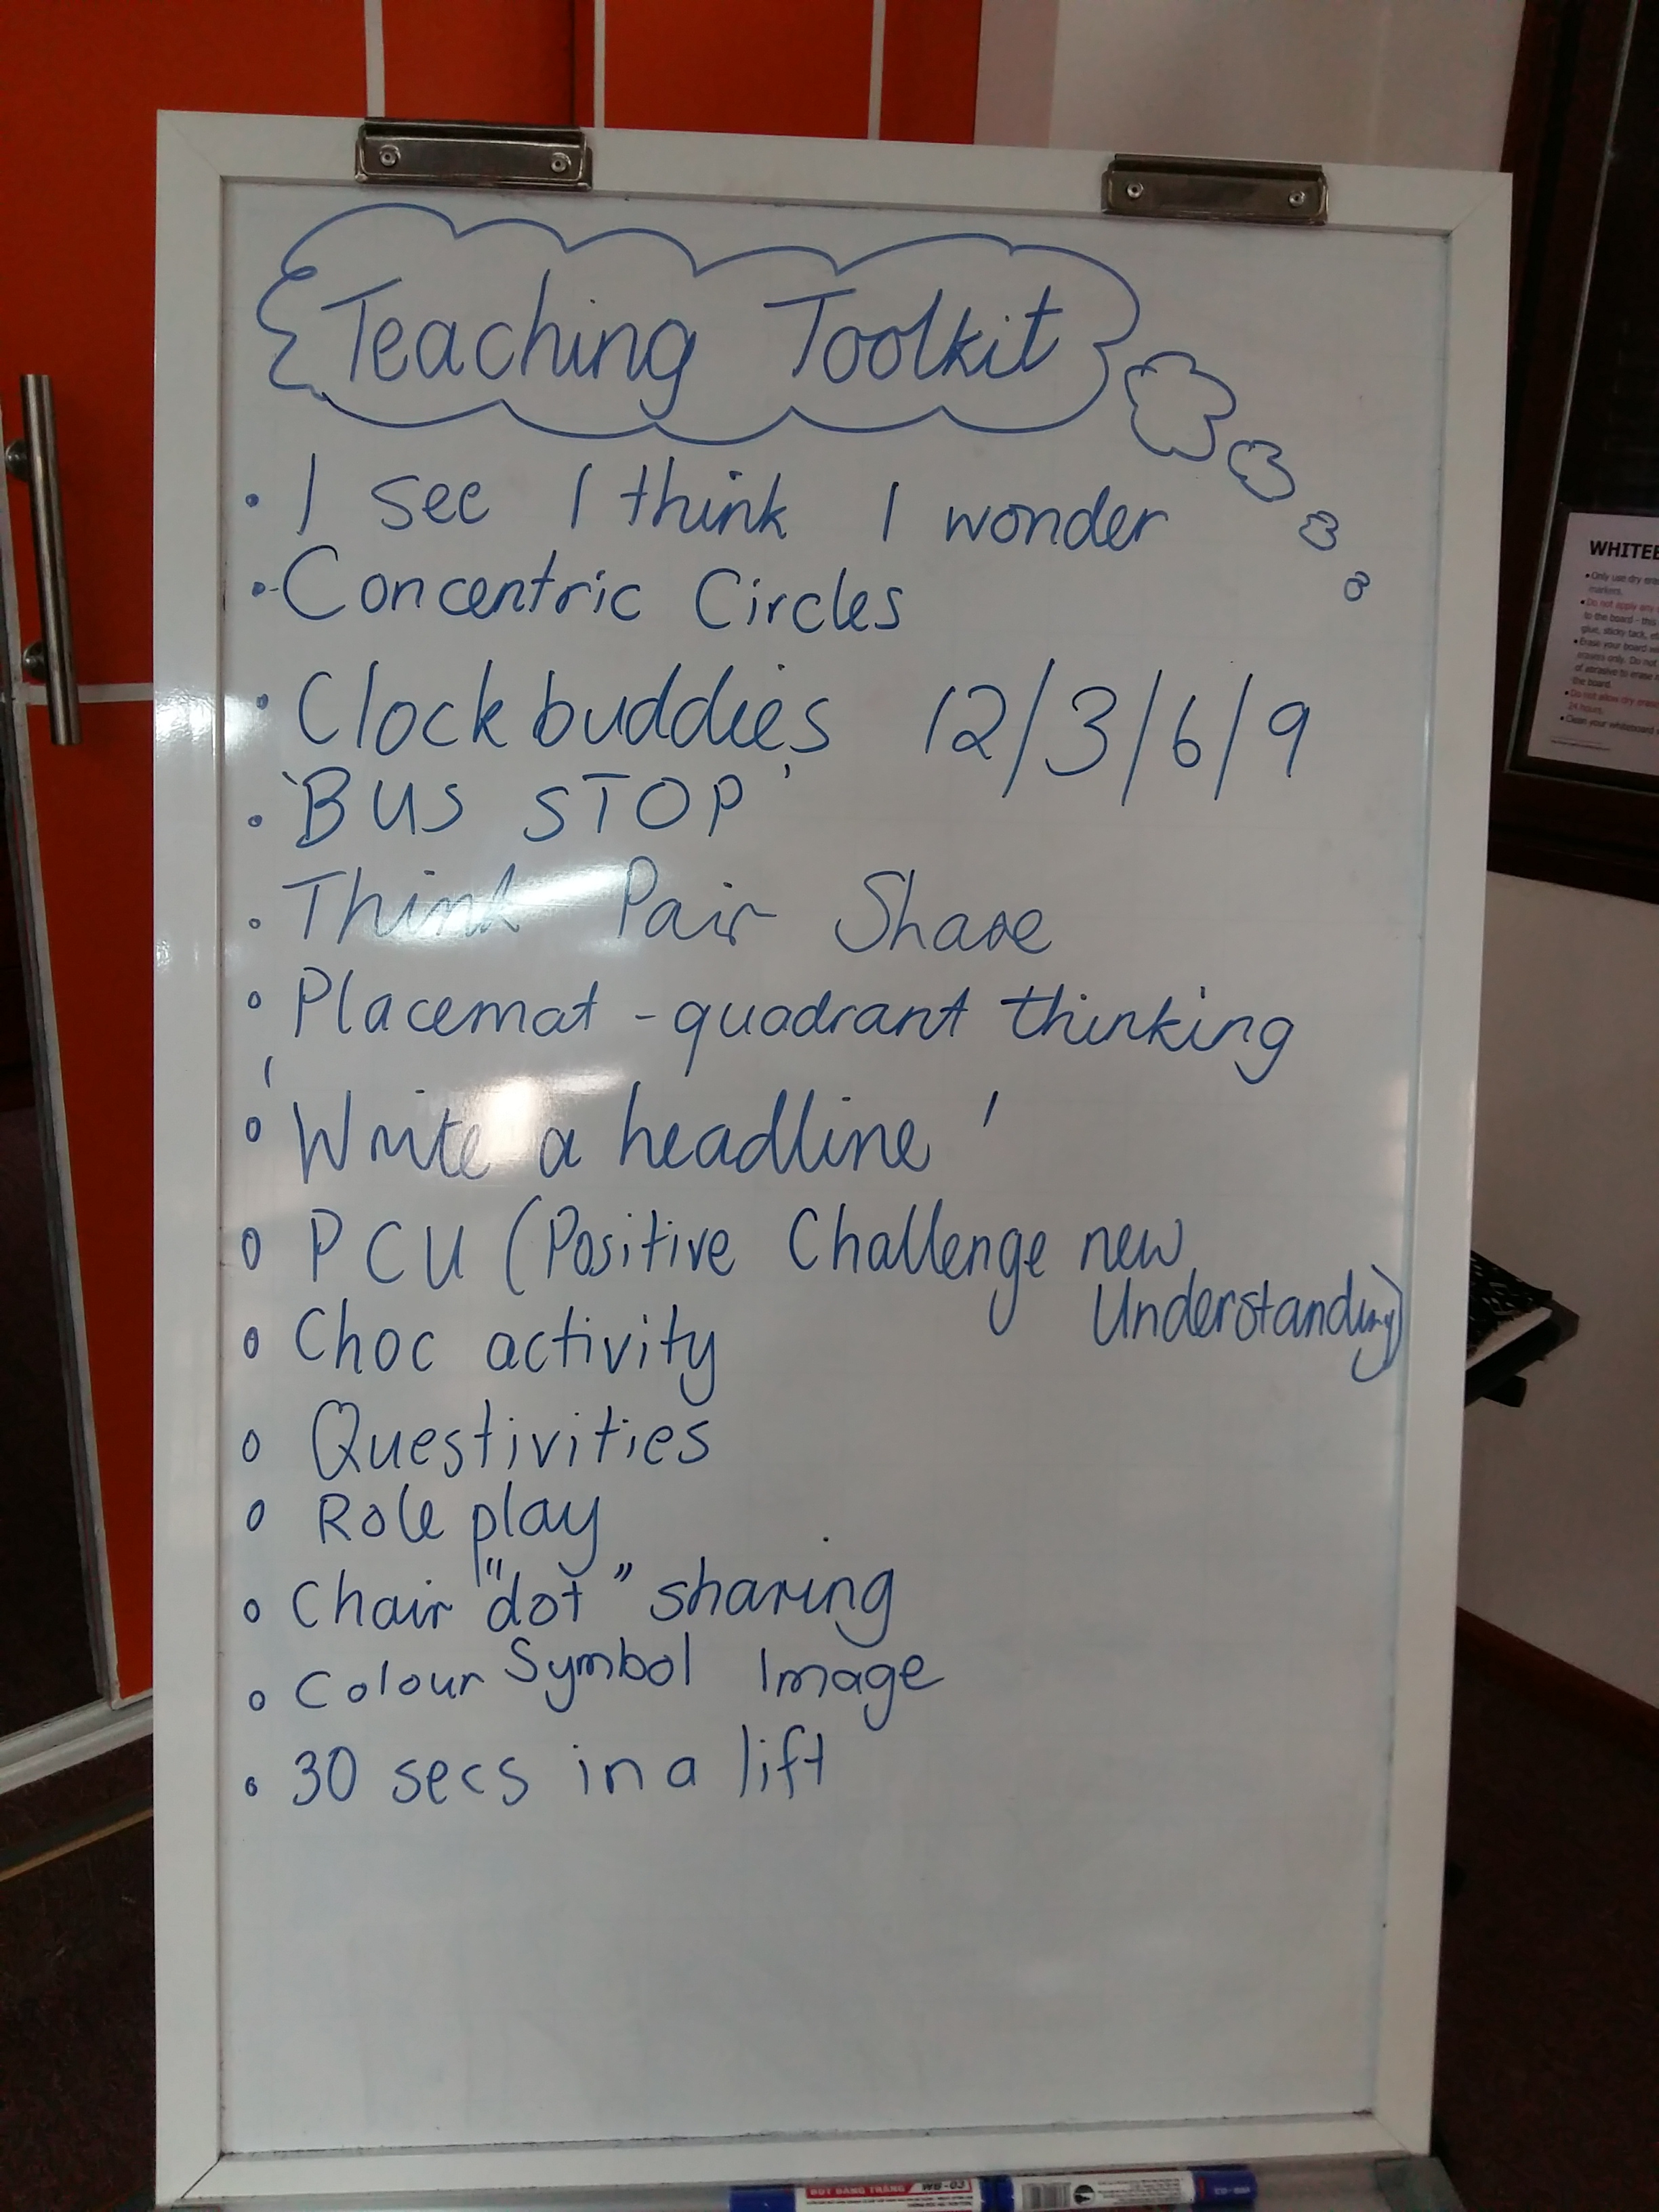 Teaching Toolkit
• I see I think I wonder
• Concentric Circles
• Clock buddies 12/3/6/9
• 'BUS STOP'
• Think Pair Share
• Placemat - quadrant thinking
• 'Write a headline'
• PCU (Positive Challenge new
Understanding)
• Choc activity
• Questivities
• Role play
• Chair "dot" sharing
• Colour Symbol Image
• 30 secs in a lift
WHITEB
• Only use dry eras
markers.
• Do not apply any
to the board - this
glue, sticky tack, et
• Erase your board wi
erasers only. Do not
of abrasive to erase
the board.
• Do not allow dry eras
24 hours.
• Clean your whiteboard
BÚT BẢNG TRẮNG